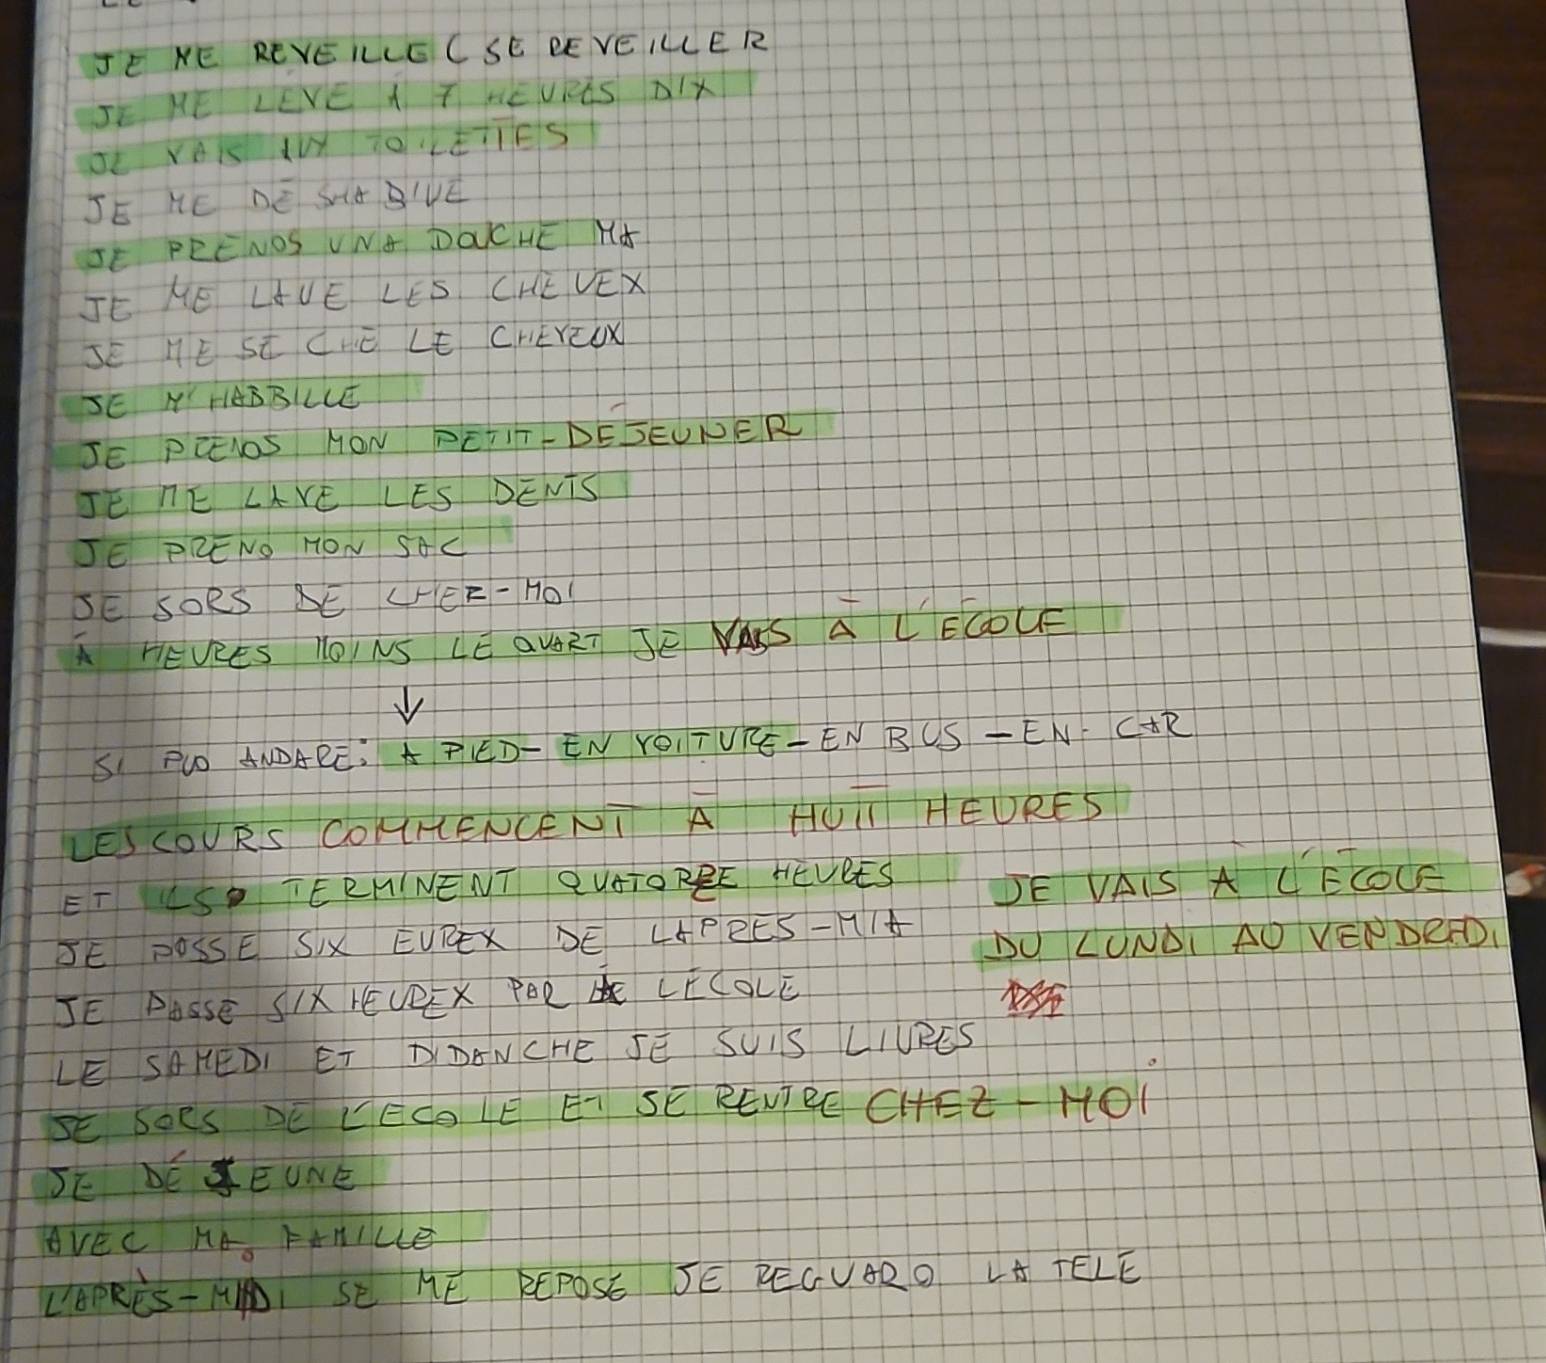 JE ME REVEILLE (SE REVEILLER
JE ME LEVE A 7 HEURES DIX
JE VAIS AUX TOILETTES
JE ME DÉSHABIVE
JE PRENDS UNA DOUCHE MA
JE ME LAVE LES CHEVEX
JE ME SECHE LE CHEVEUX
JE M'HABBILLE
JE PRENDS MON PETIT-DÉJEUNER
JE ME LAVE LES DENTS
JE PREND MON SAC
JE SORS DE CHEZ-MOI
À HEURES MOINS LE QUART JE VAIS À L'ÉCOLE
↓
SI PUO ANDARE: A PIED - EN VOITURE - EN BUS - EN CAR
LES COURS COMMENCENT À HUIT HEURES
ET ILS TERMINENT QUATORZE HEURES
JE VAIS À L'ÉCOLE
DU LUNDI AU VENDREDI
JE POSSE SIX EUREX DE LAPRES-MIA
JE PASSE SIX HEUREX PAR LÉCOLE
LE SAMEDI ET DIDANCHE JE SUIS LIVRES
JE SORS DE L'ECOLE ET SE RENTRE CHEZ-MOI
JE DÉJEUNE
AVEC MA FAMILLE
L'APRÈS-MIDI SE ME REPOSE JE REGUARD LA TELE